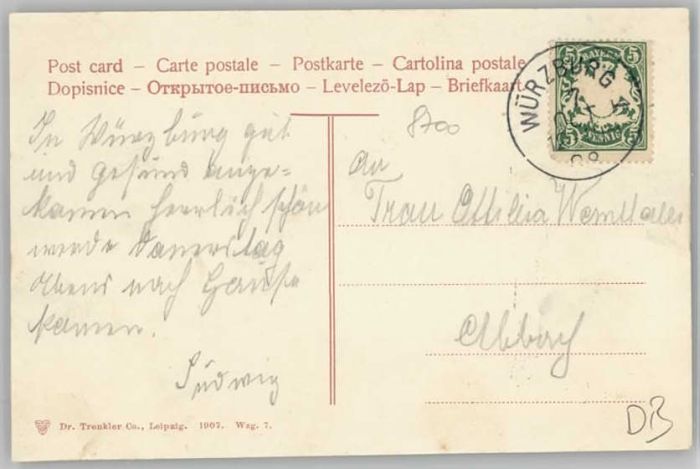 Post card – Carte postale – Postkarte – Cartolina postale
Dopisnice – Открытое-письмо – Levelező-Lap – Briefkaart
BAYERN
5 5
5 5
PFENNIG
WÜRZBURG
08
8700
In Würzburg gut
und gesund ange-
kamen herrlich schön
werde Danerstag
Abens nach Hause
kamen.
Ludwig
An
Frau Ottilia
Abbach
DB
Dr. Trenkler Co., Leipzig. 1907. Wzg. 7.